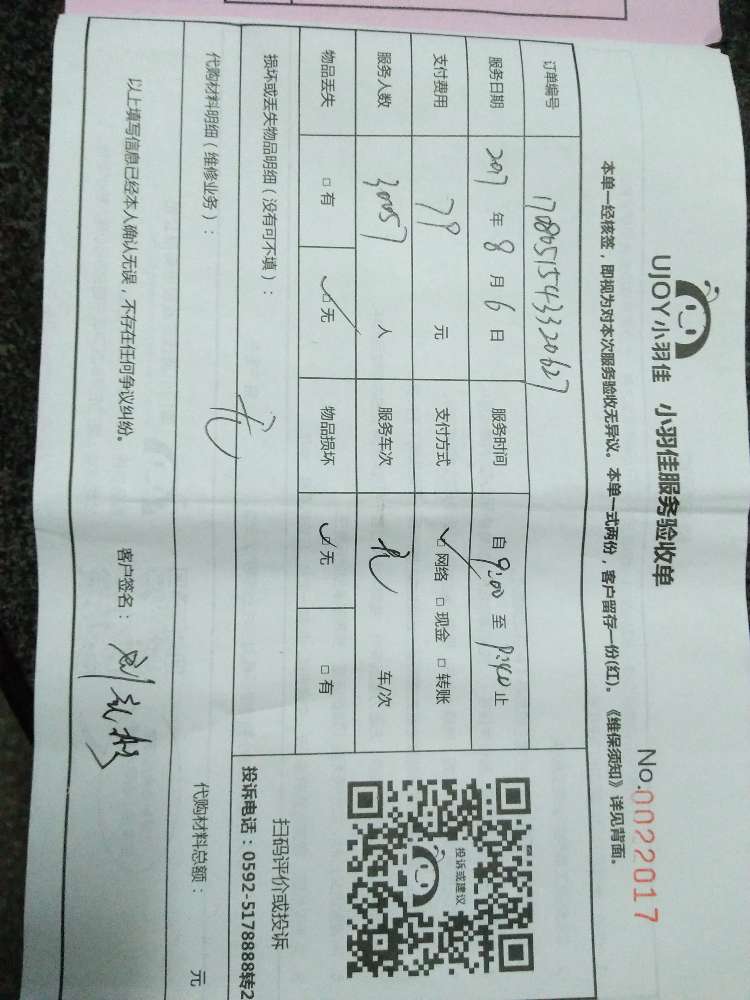 UJOY小羽佳 小羽佳服务验收单
No.0022017
本单一经核签，即视为对本次服务验收无异议。本单一式两份，客户留存一份(红)。《维保须知》详见背面。
订单编号 1708051543320627
服务日期 2017 年 8 月 6 日 服务时间 自 9:00 至 止
支付费用 79 元 支付方式 ☑ 网络 □ 现金 □ 转账
服务人数 30057 人 服务车次 车/次
物品丢失 □ 有 ☑ 无 物品损坏 ☑ 无 □ 有
投诉或建议
扫码评价或投诉
投诉电话：0592-5178888转2
损坏或丢失物品明细（没有可不填）：
无
代购材料明细（维修业务）：
代购材料总额： 元
以上填写信息已经本人确认无误，不存在任何争议纠纷。 客户签名：